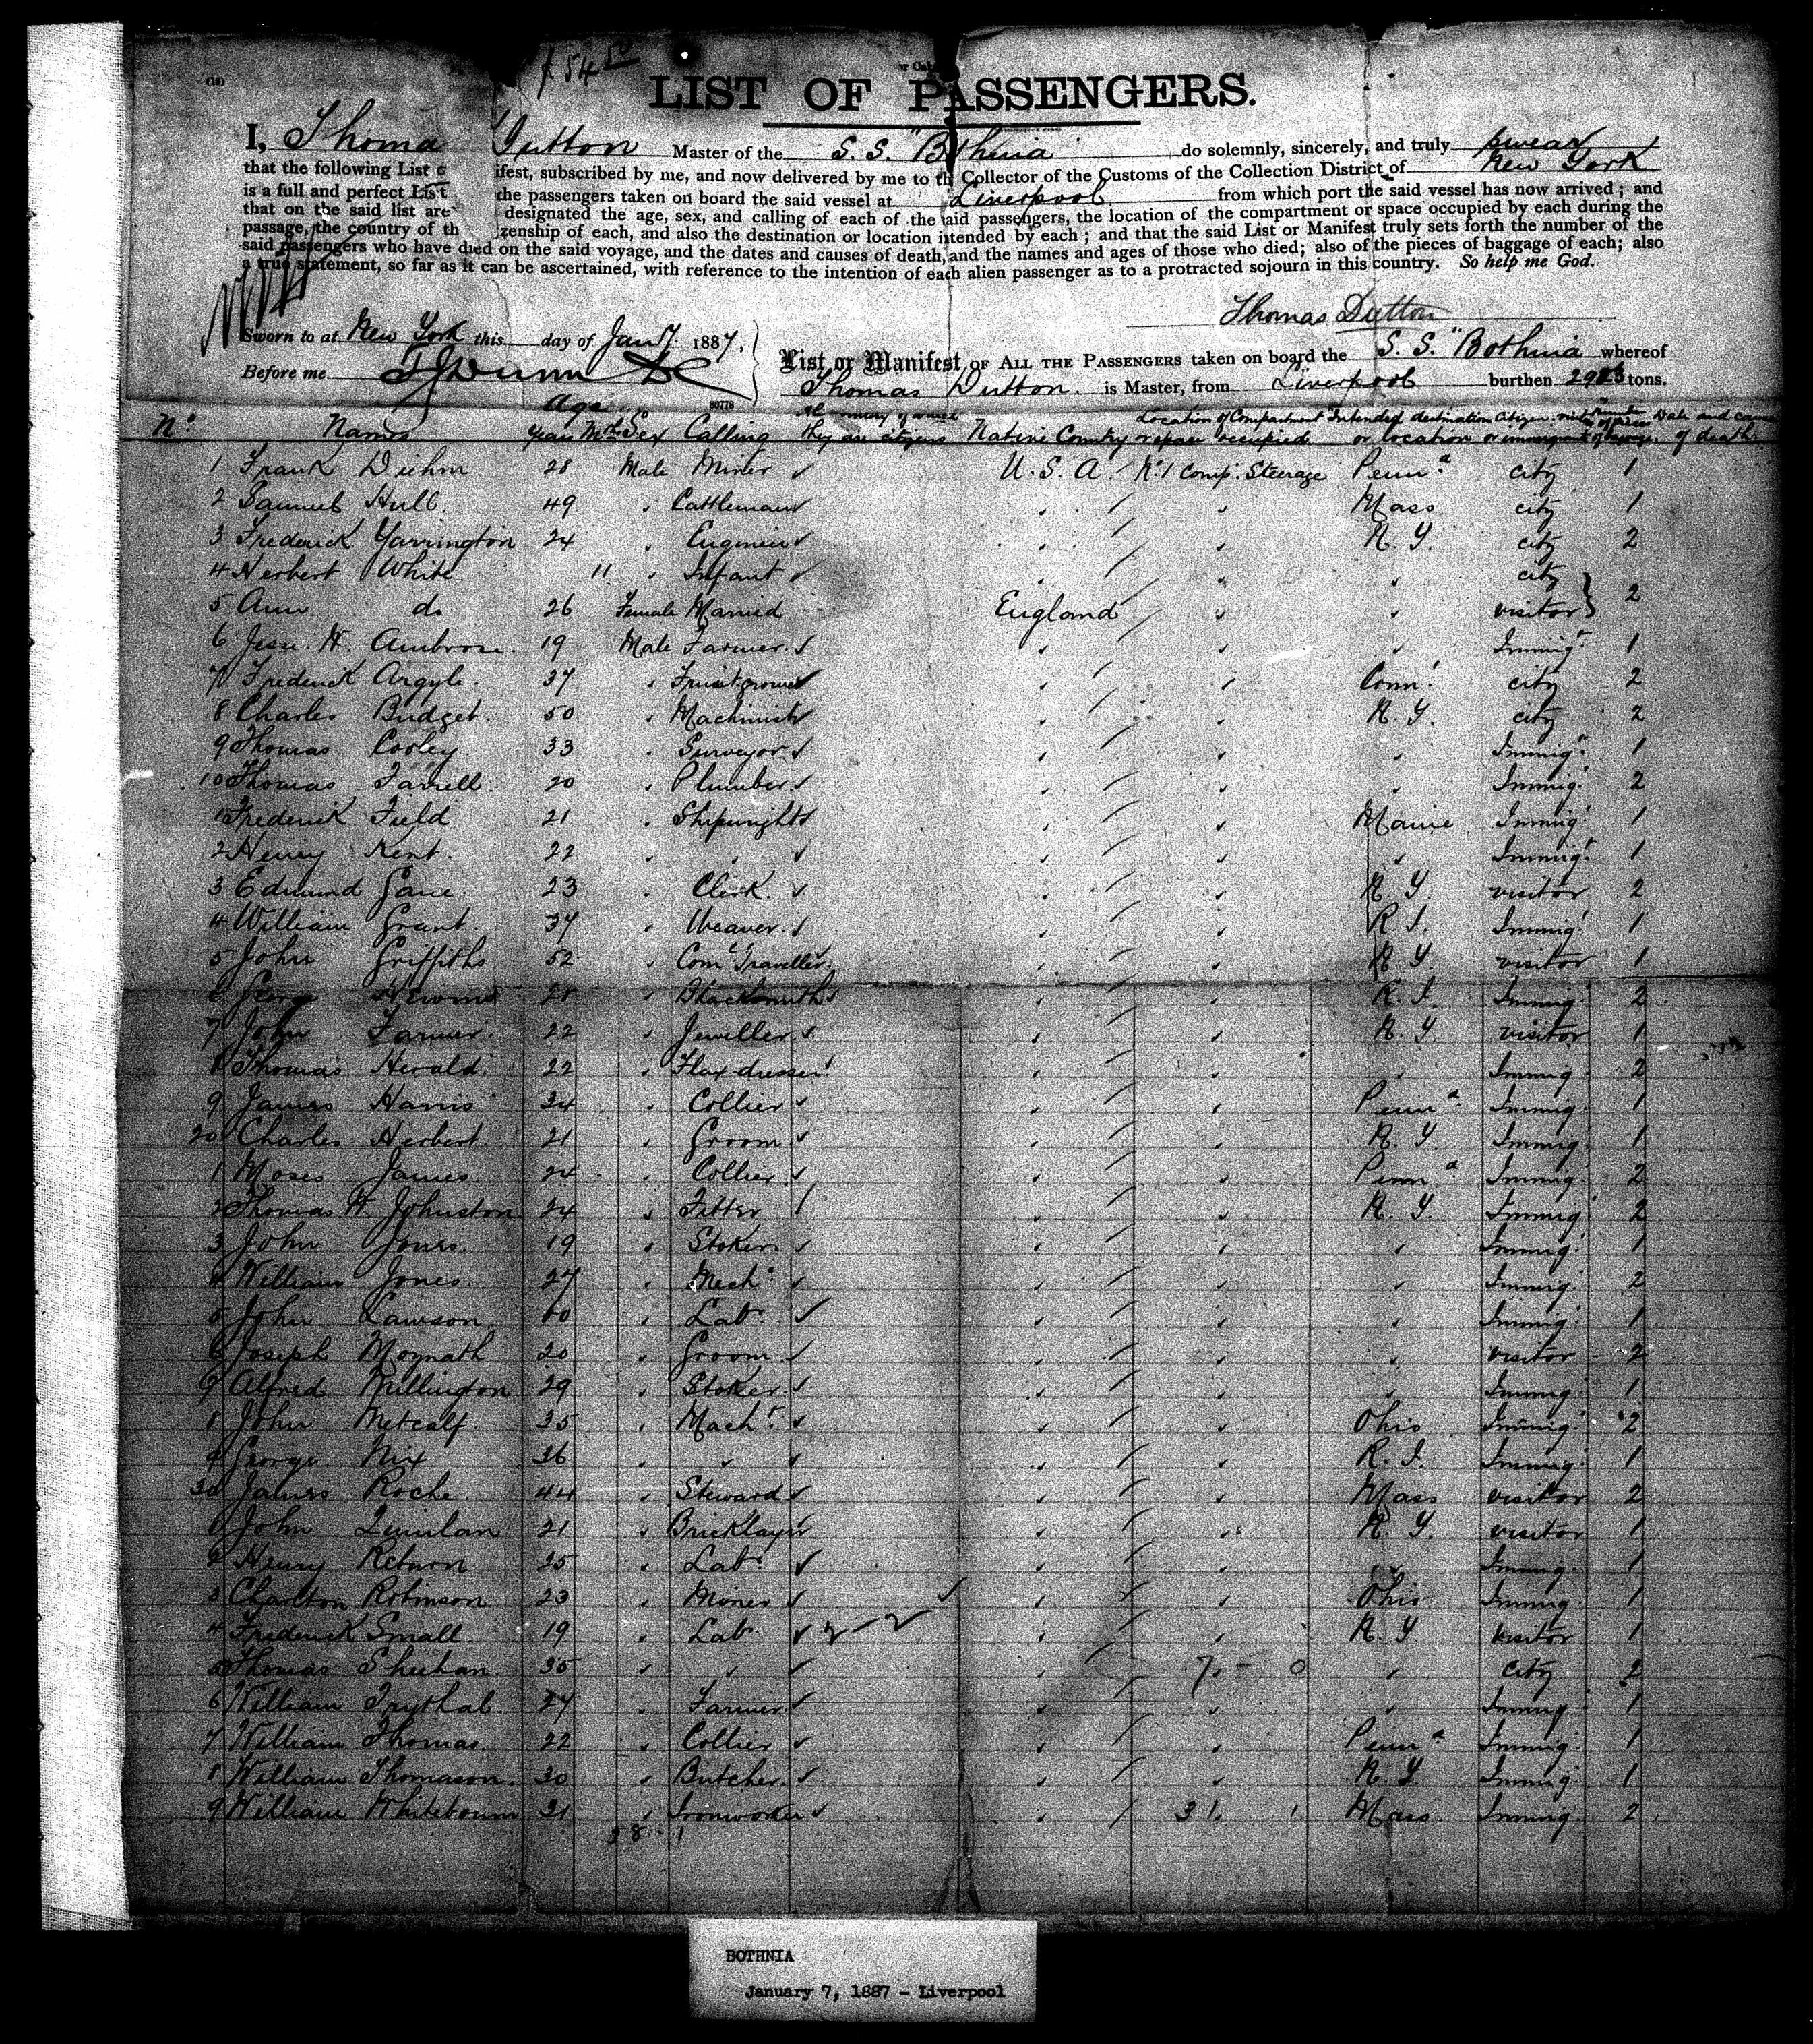 (18)
$ 54 50
LIST OF PASSENGERS.
I, Thoma Dutton Master of the S. S. "Bothnia do solemnly, sincerely, and truly swear
that the following List o ifest, subscribed by me, and now delivered by me to th Collector of the Customs of the Collection District of New York
is a full and perfect List the passengers taken on board the said vessel at Liverpool from which port the said vessel has now arrived; and
that on the said list are designated the age, sex, and calling of each of the said passengers, the location of the compartment or space occupied by each during the
passage, the country of th zenship of each, and also the destination or location intended by each; and that the said List or Manifest truly sets forth the number of the
said passengers who have died on the said voyage, and the dates and causes of death, and the names and ages of those who died; also of the pieces of baggage of each; also
a true statement, so far as it can be ascertained, with reference to the intention of each alien passenger as to a protracted sojourn in this country. So help me God.
Thomas Dutton
Sworn to at New York this day of Jan 7 1887,
Before me
List or Manifest OF ALL THE PASSENGERS taken on board the S. S. "Bothnia whereof
Thomas Dutton. is Master, from Liverpool burthen tons.
No. Names Age Years Mths Sex Calling they are citizens Native Country Location of Compartment or space occupied Intended destination or location Citizen Date and cause of death
1 Frank Diehm 28 Male Miner U. S. A. No. 1 Comp. Steerage Penna city 1
2 Samuel Hull 49 " Cattleman " " Mass city 1
3 Frederick Yarrington 24 " Engineer " " N. Y. city 2
4 Herbert White 11 " Infant " " " city
5 Ann do 26 Female Married England " " visitor } 2
6 Jesse W. Ambrose 19 Male Farmer " " " Immigt 1
7 Frederick Argyle 37 " Fruit grower " " Conn. city 2
8 Charles Budget. 50 " Machinist " " N. Y. city 2
9 Thomas Cooley 33 " Surveyor " " " Immigt 1
10 Thomas Farrell. 20 " Plumber " " " Immigt 2
1 Frederick Field 21 " Shipwright " " Maine Immigt 1
2 Henry Kent. 22 " " " " " Immigt 1
3 Edmund Gane 23 " Clerk. " " N. Y. visitor 2
4 William Grant. 37 " Weaver " " R. I. Immigt 1
5 John Griffiths 52 " Coml Traveller " " N. Y. visitor 1
6 George " Blacksmith " " R. I. Immig 2
7 John Farmer. 22 " Jeweller " " N. Y. visitor 1
8 Thomas Herald. 22 " Flax dresser " " " Immig 2
9 James Harris 34 " Collier " " Penna Immig 1
20 Charles Herbert 21 " Groom " " N. Y. Immig 1
1 Moses James 24 " Collier " " Penna Immig 2
2 Thomas H. Johnston 24 " Fitter " " N. Y. Immig 2
3 John Jones 19 " Stoker " " " Immig 1
4 William Jones 27 " Mech " " " Immig 2
5 John Lawson " Labr " " " Immig 1
6 Joseph Moynath 20 " Groom " " " visitor 2
7 Alfred Millington 29 " Stoker " " " Immig 1
8 John Metcalf 35 " Macht " " Ohio Immig 2
9 George Nix 36 " " " " R. I. Immig 1
30 James Roche 44 " Steward " " Mass visitor 2
1 John Quinlan 21 " Bricklayer " " N. Y. visitor 1
2 Henry Return 25 " Labr " " " Immig 1
3 Charlton Robinson 23 " Miner " " Ohio Immig 1
4 Frederick Small 19 " Labr " " N. Y. visitor 1
5 Thomas Sheehan 35 " " " " city 2
6 William Trythal 27 " Farmer " " " Immig 1
7 William Thomas 22 " Collier " " Penna Immig 1
8 William Thomason 30 " Butcher " " N. Y. Immig 1
9 William Whitebourn 31 " Ironworker " Mass Immig 2
38 1
BOTHNIA
January 7, 1887 - Liverpool